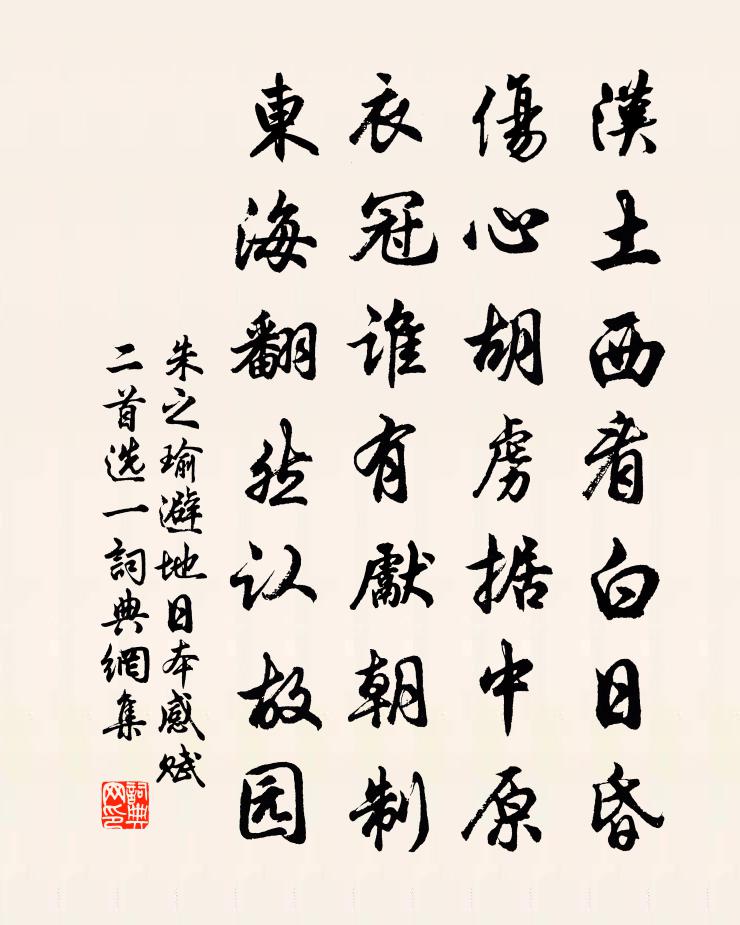 漢土西看白日昏
傷心胡虜据中原
衣冠誰有獻朝制
東海翻然认故园
朱之瑜避地日本感赋
二首选一詞典網集
詞典网印